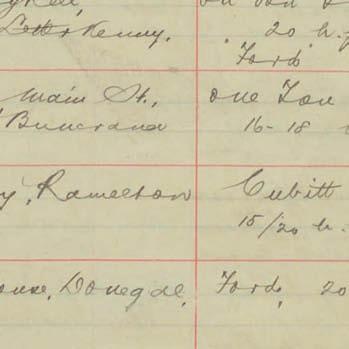 Letterkenny, 20 h.
Ford
Main St., one Ton
Buncrana 16-18
y, Ramelton Cubitt
15/20 h.
ouse, Donegal, Ford, 20